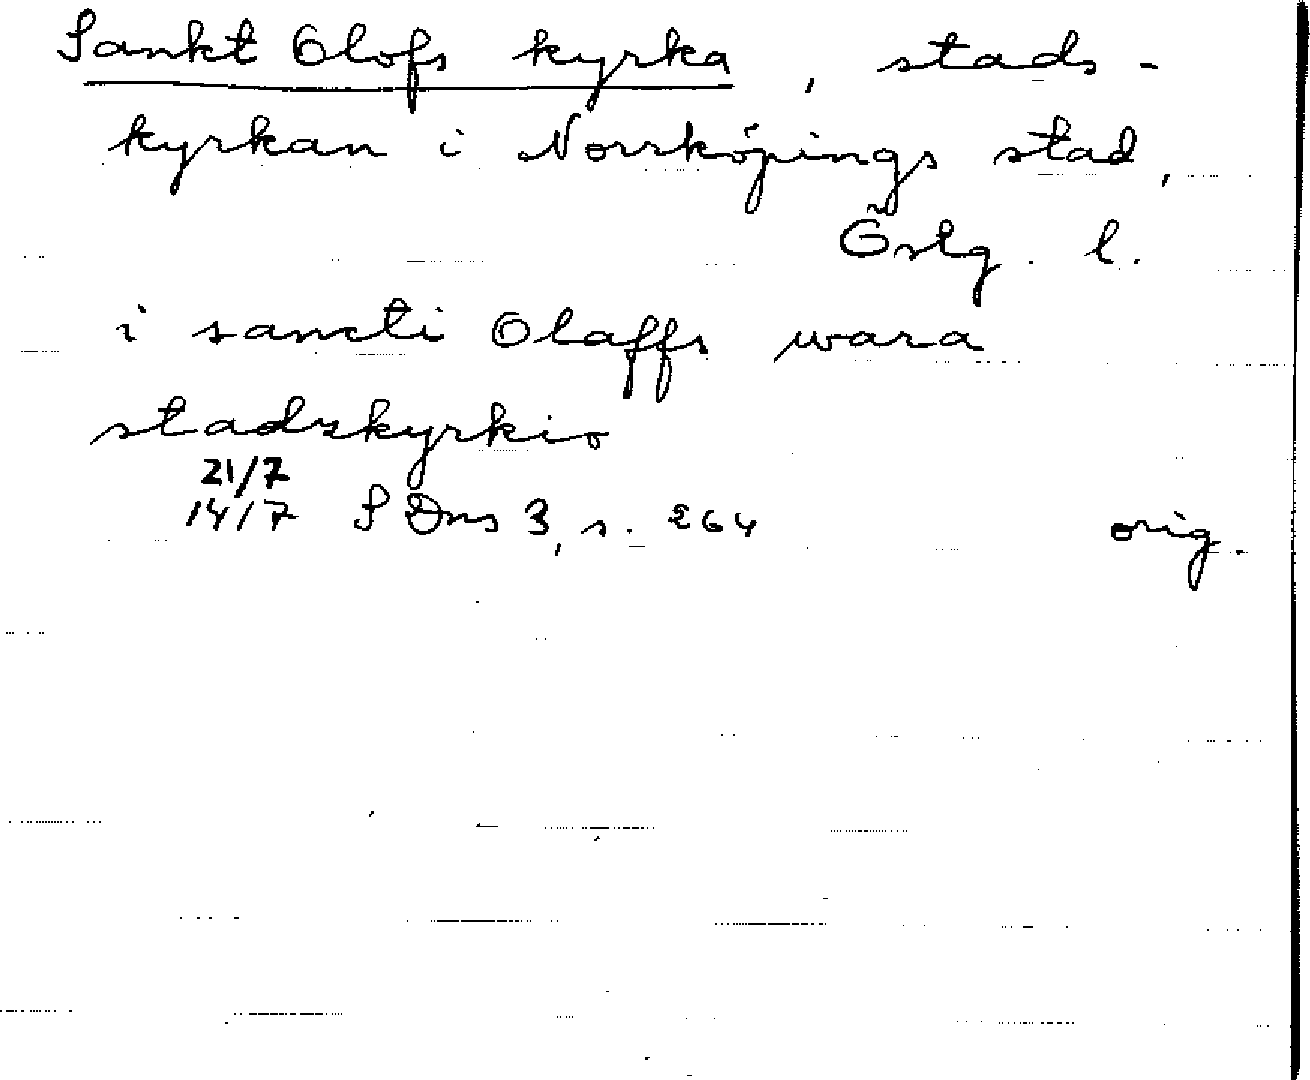 Sankt Olofs kyrka, stads-
kyrkan i Norrköpings stad,
Östg. l.
i sancti Olaffs wara
stadzkyrkio
21/7
1417 S Dns 3, s. 264 orig.